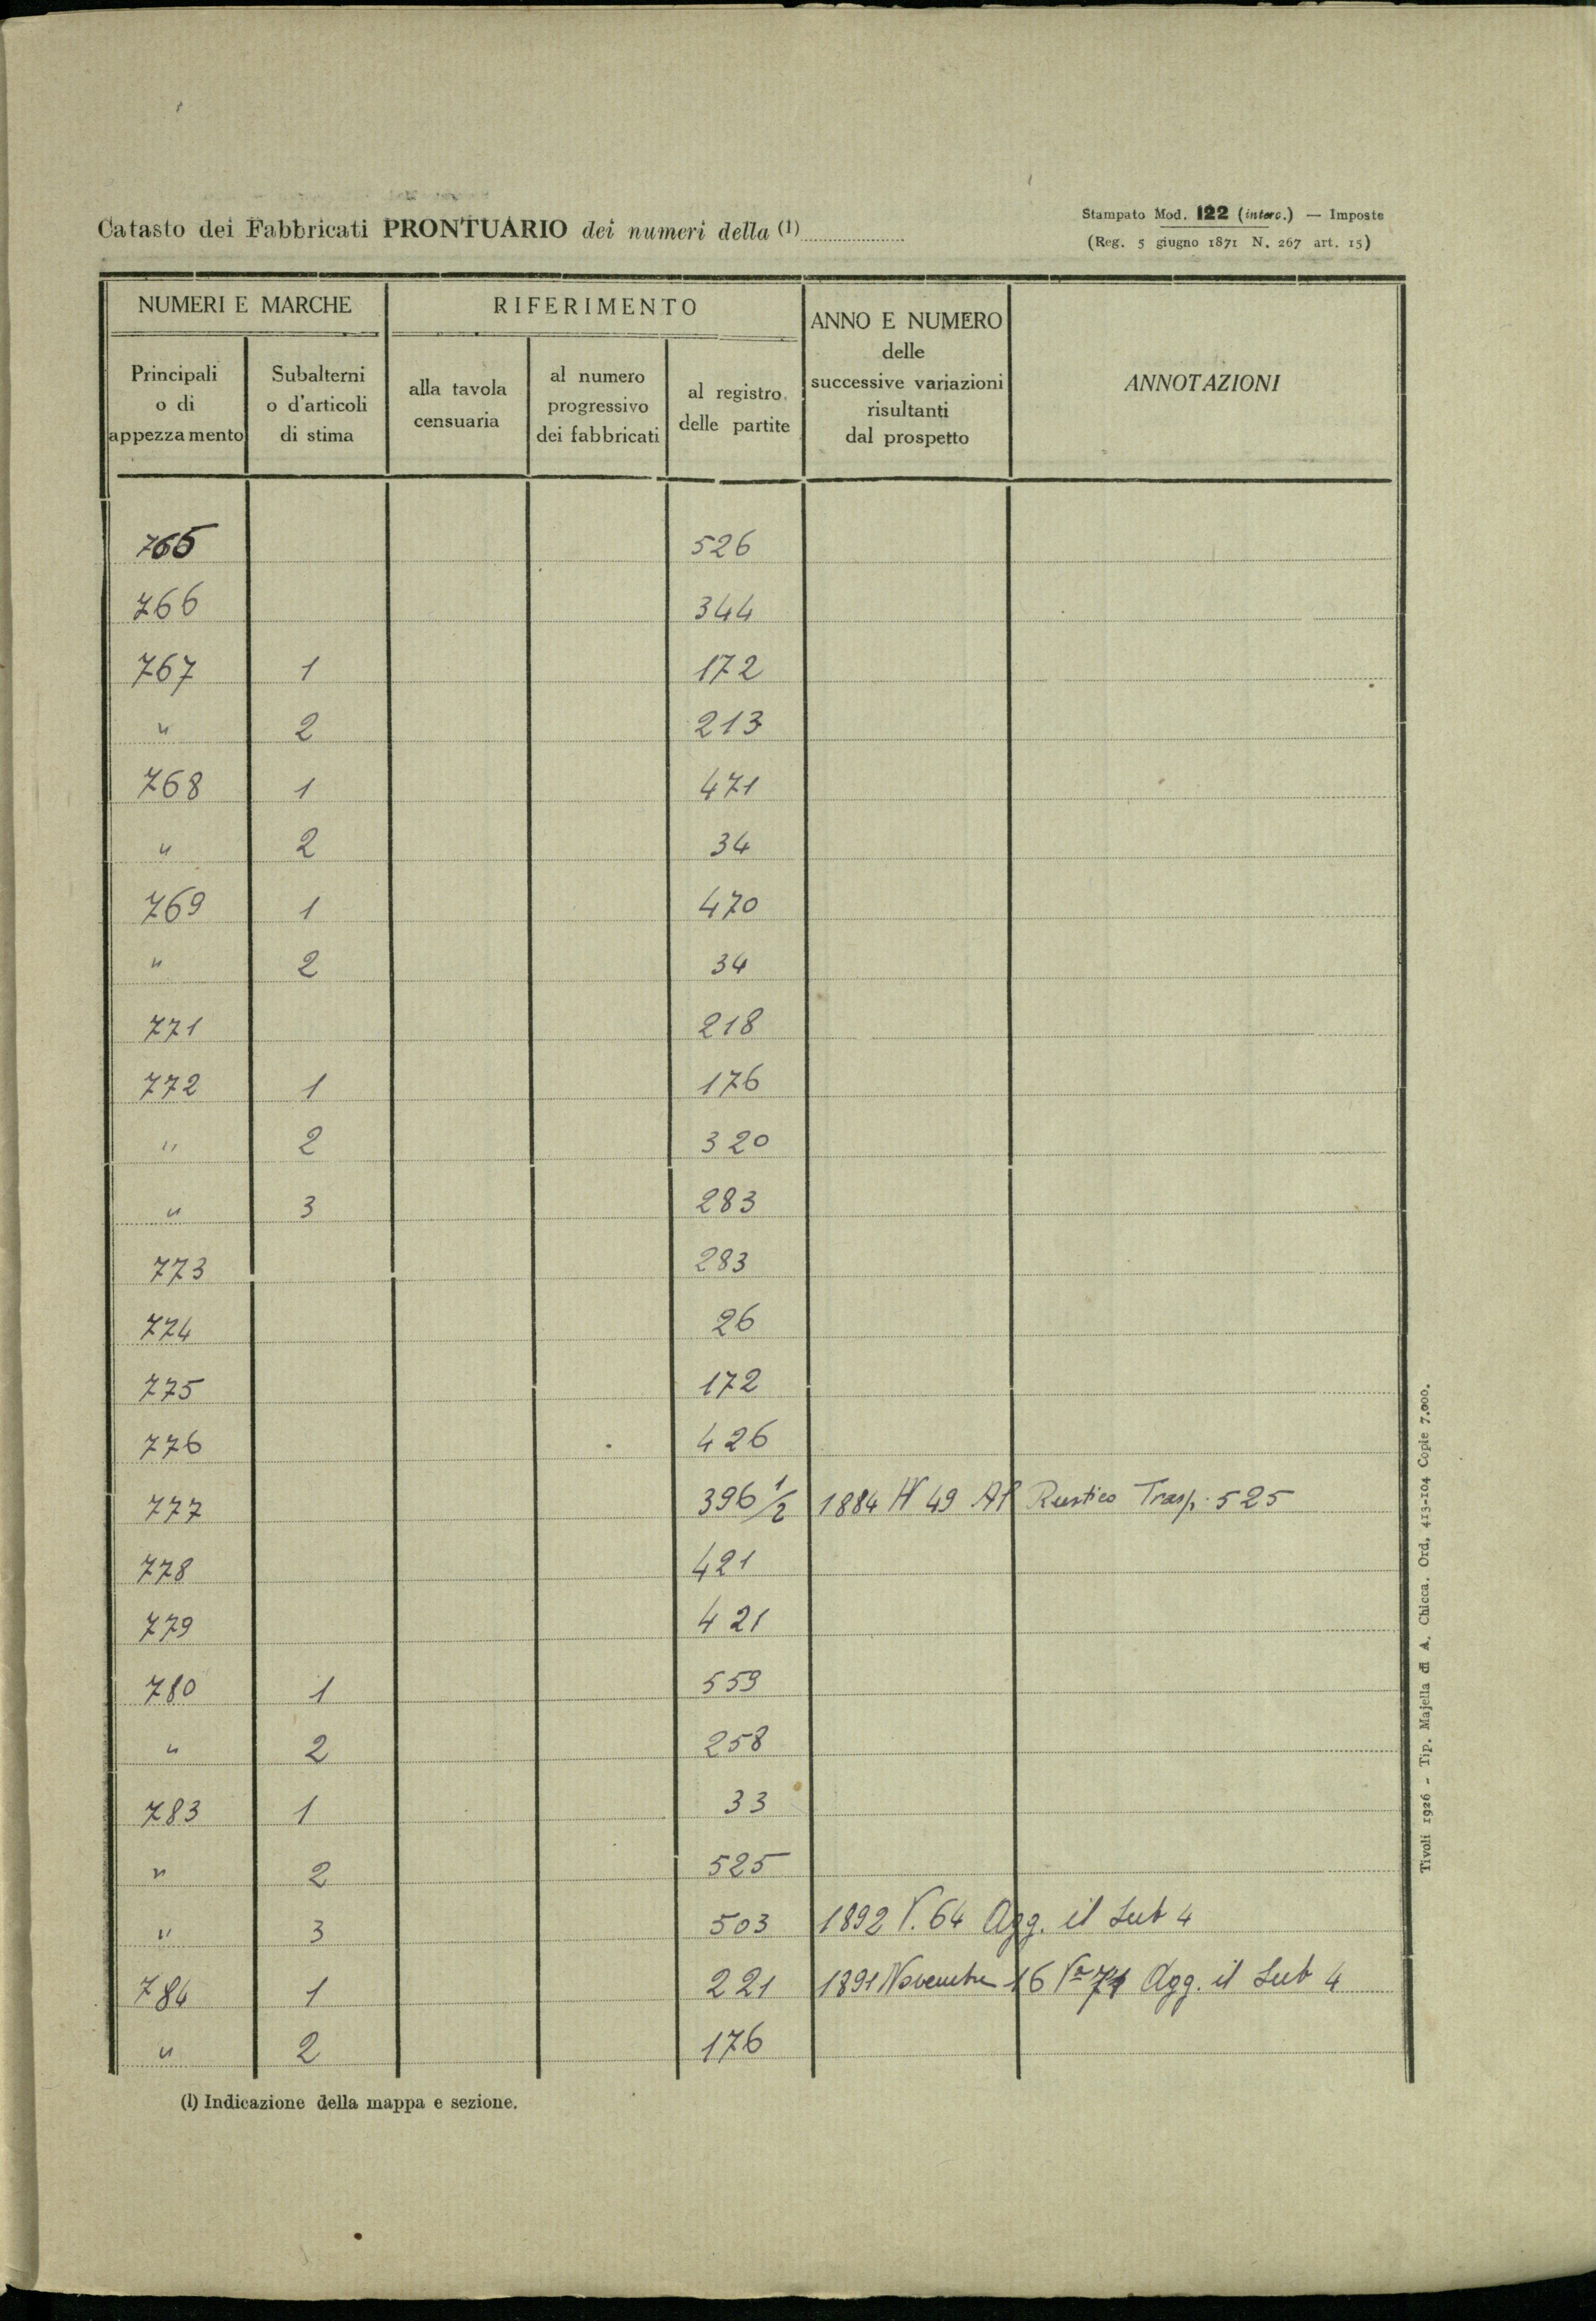 Catasto dei Fabbricati PRONTUARIO dei numeri della (1)
Stampato Mod. 122 (interc.) — Imposte
(Reg. 5 giugno 1871 N. 267 art. 15)
NUMERI E MARCHE
RIFERIMENTO
ANNO E NUMERO
delle
successive variazioni
risultanti
dal prospetto
ANNOTAZIONI
Principali
o di
appezzamento
Subalterni
o d'articoli
di stima
alla tavola
censuaria
al numero
progressivo
dei fabbricati
al registro
delle partite
765 526
766 344
767 1 172
" 2 213
768 1 471
" 2 34
769 1 470
" 2 34
771 218
772 1 176
" 2 320
" 3 283
773 283
774 26
775 172
776 426
777 396 1/2 1884 N 49 Al Rustico Trasp. 525
778 421
779 421
780 1 559
" 2 258
783 1 33
" 2 525
" 3 503 1892 V. 64 Agg. il Sub 4
784 1 221 1891 Novembre 16 Agg. il Sub 4
" 2 176
(1) Indicazione della mappa e sezione.
Tivoli 1926 - Tip. Majella di A. Chicca. Ord. 413-104 Copie 7.000.